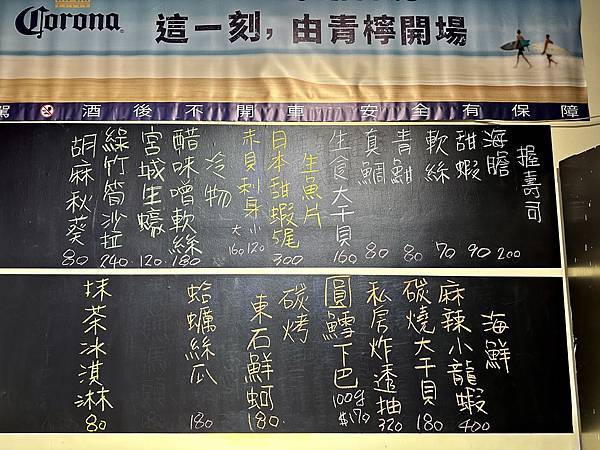 Corona
這一刻，由青檸開場
駕 酒後不開車 安全有保障
握壽司
海膽 200
甜蝦 90
軟絲 70
青魽 80
真鯛 80
生食大干貝 160
生魚片
日本甜蝦5尾 300
赤貝刺身 小120 大160
冷物
醋味噌軟絲 180
宮城生蠔 120
綠竹筍沙拉 240
胡麻秋葵 80
海鮮
麻辣小龍蝦 400
碳燒大干貝 180
私房炸透抽 320
圓鱈下巴 100g $170
碳烤
東石鮮蚵 180
蛤蠣絲瓜 180
抹茶冰淇淋 80